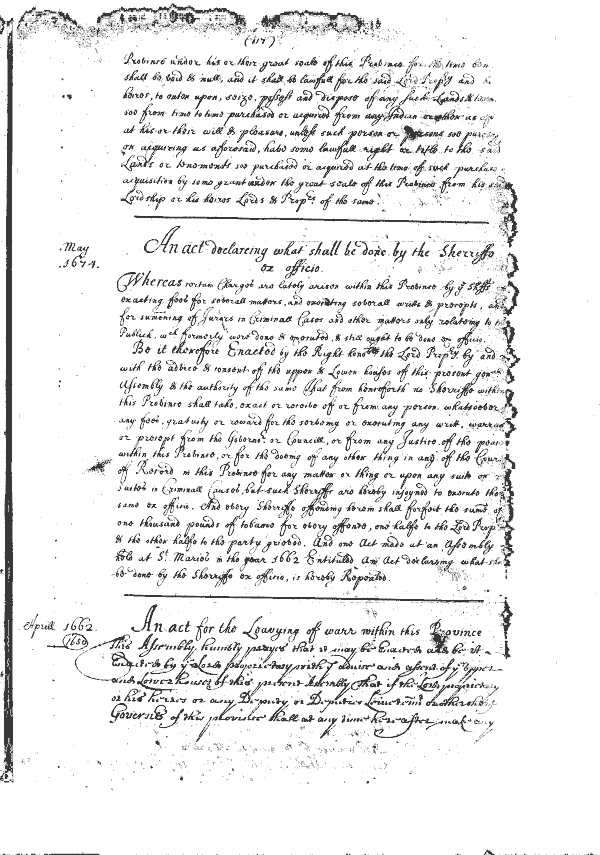 (117)
Province under his or their great seale of this Province for the time
shall be void & null, and it shall be lawfull for the said Lord Propry and
heires, to enter upon, seize, possess and dispose of any such Lands &
soe from time to time purchased or acquired from any Indian or
at his or their will & pleasure, unless such person or persons soe
or acquiring as aforesaid, have some lawfull right or title to the said
Lands or tenements soe purchased or acquired at the time of such purchase
acquisition by some grant under the great seale of this Province from his
Lordship or his heires Lords & Proprs of the same.
May
1674.
An act declareing what shall be done by the Sherriffs
ex officio.
Whereas certain Charges are lately arisen within this Province by ye
exacting fees for severall matters, and executing severall writts & precepts,
for summoning of Jurors in Criminall Cases and other matters only relateing to
Publick, wch formerly were done & executed, & still ought to be done ex officio.
Be it therefore Enacted by the Right honoble the Lord Propry by and
with the advice & consent of the upper & Lower houses of this present
Assembly & the authority of the same That from henceforth no Sherriffe within
this Province shall take, exact or receive of or from any person whatsoever
any fee, gratuity or reward for the serveing or executing any writt,
or precept from the Governr or Councill, or from any Justice of the peace
within this Province, or for the doeing of any other thing in any of the
of Record in this Province for any matter or thing or upon any suite or
in Criminall Causes, but such Sherriffs are hereby injoyned to execute the
same ex officio. And every Sherriffe offending herein shall forfeit the sume of
one thousand pounds of tobacco for every offence, one halfe to the Lord
& the other halfe to the party grieved. And one Act made at an Assembly
held at St. Maries in the year 1662 Entituled An Act declaring what
be done by the Sherriffe ex officio, is hereby Repealed.
Aprill 1662
1650
An act for the Leavying of warr within this Province
This Assembly humbly prayes that it may be Enacted and be it
Enacted by ye Lord proprietary with ye advice and assent of ye upper
and Lower houses of this present Assembly That if the Lord proprietary
or his heires or any Deputy or Deputies Lieutent or other
Governrs of this province shall at any time hereafter make any